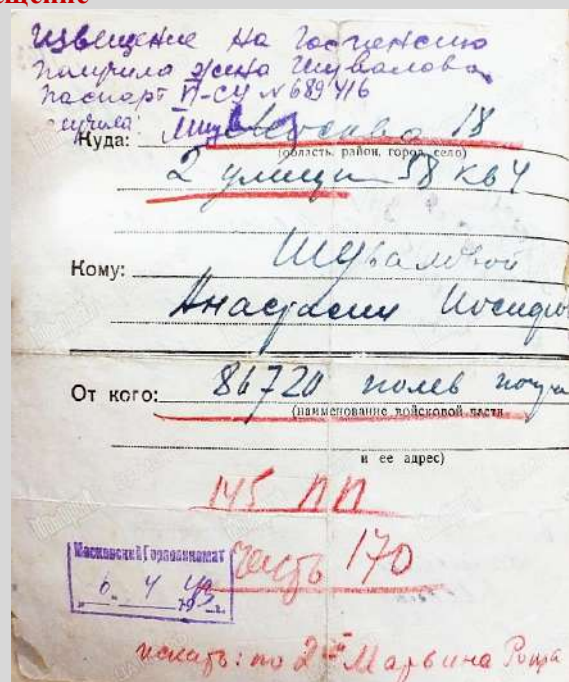 щение
Извещение на Госпенсию
получила жена Шувалова
паспорт II-СУ № 689416
получила:
Куда: Москва 18
(область, район, город, село)
2 улица 58 кв 4
Кому: Шуваловой
Анастасии Иосифо
От кого: 86720 полев почта
(наименование войсковой части
и ее адрес)
145 ПП
Московский Горвоенкомат
часть 170
6. 4 1943 г.
искать: по 2ой Марьина Роща